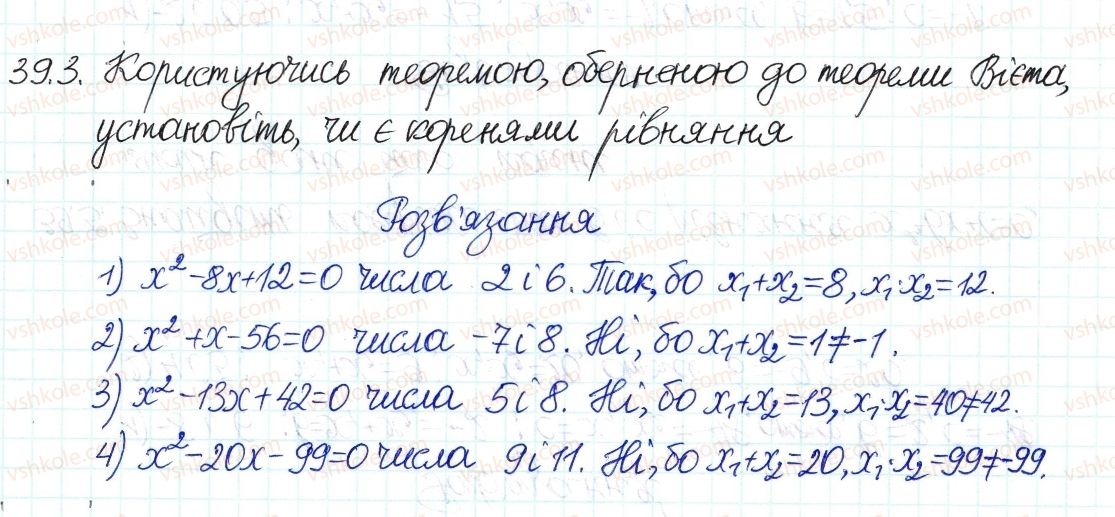 39.3. Користуючись теоремою, оберненою до теореми Вієта,
установіть, чи є коренями рівняння
Розв'язання
1) x² - 8x + 12 = 0 числа 2 і 6. Так, бо x₁ + x₂ = 8, x₁ · x₂ = 12.
2) x² + x - 56 = 0 числа -7 і 8. Ні, бо x₁ + x₂ = 1 ≠ -1.
3) x² - 13x + 42 = 0 числа 5 і 8. Ні, бо x₁ + x₂ = 13, x₁ · x₂ = 40 ≠ 42.
4) x² - 20x - 99 = 0 числа 9 і 11. Ні, бо x₁ + x₂ = 20, x₁ · x₂ = 99 ≠ -99.